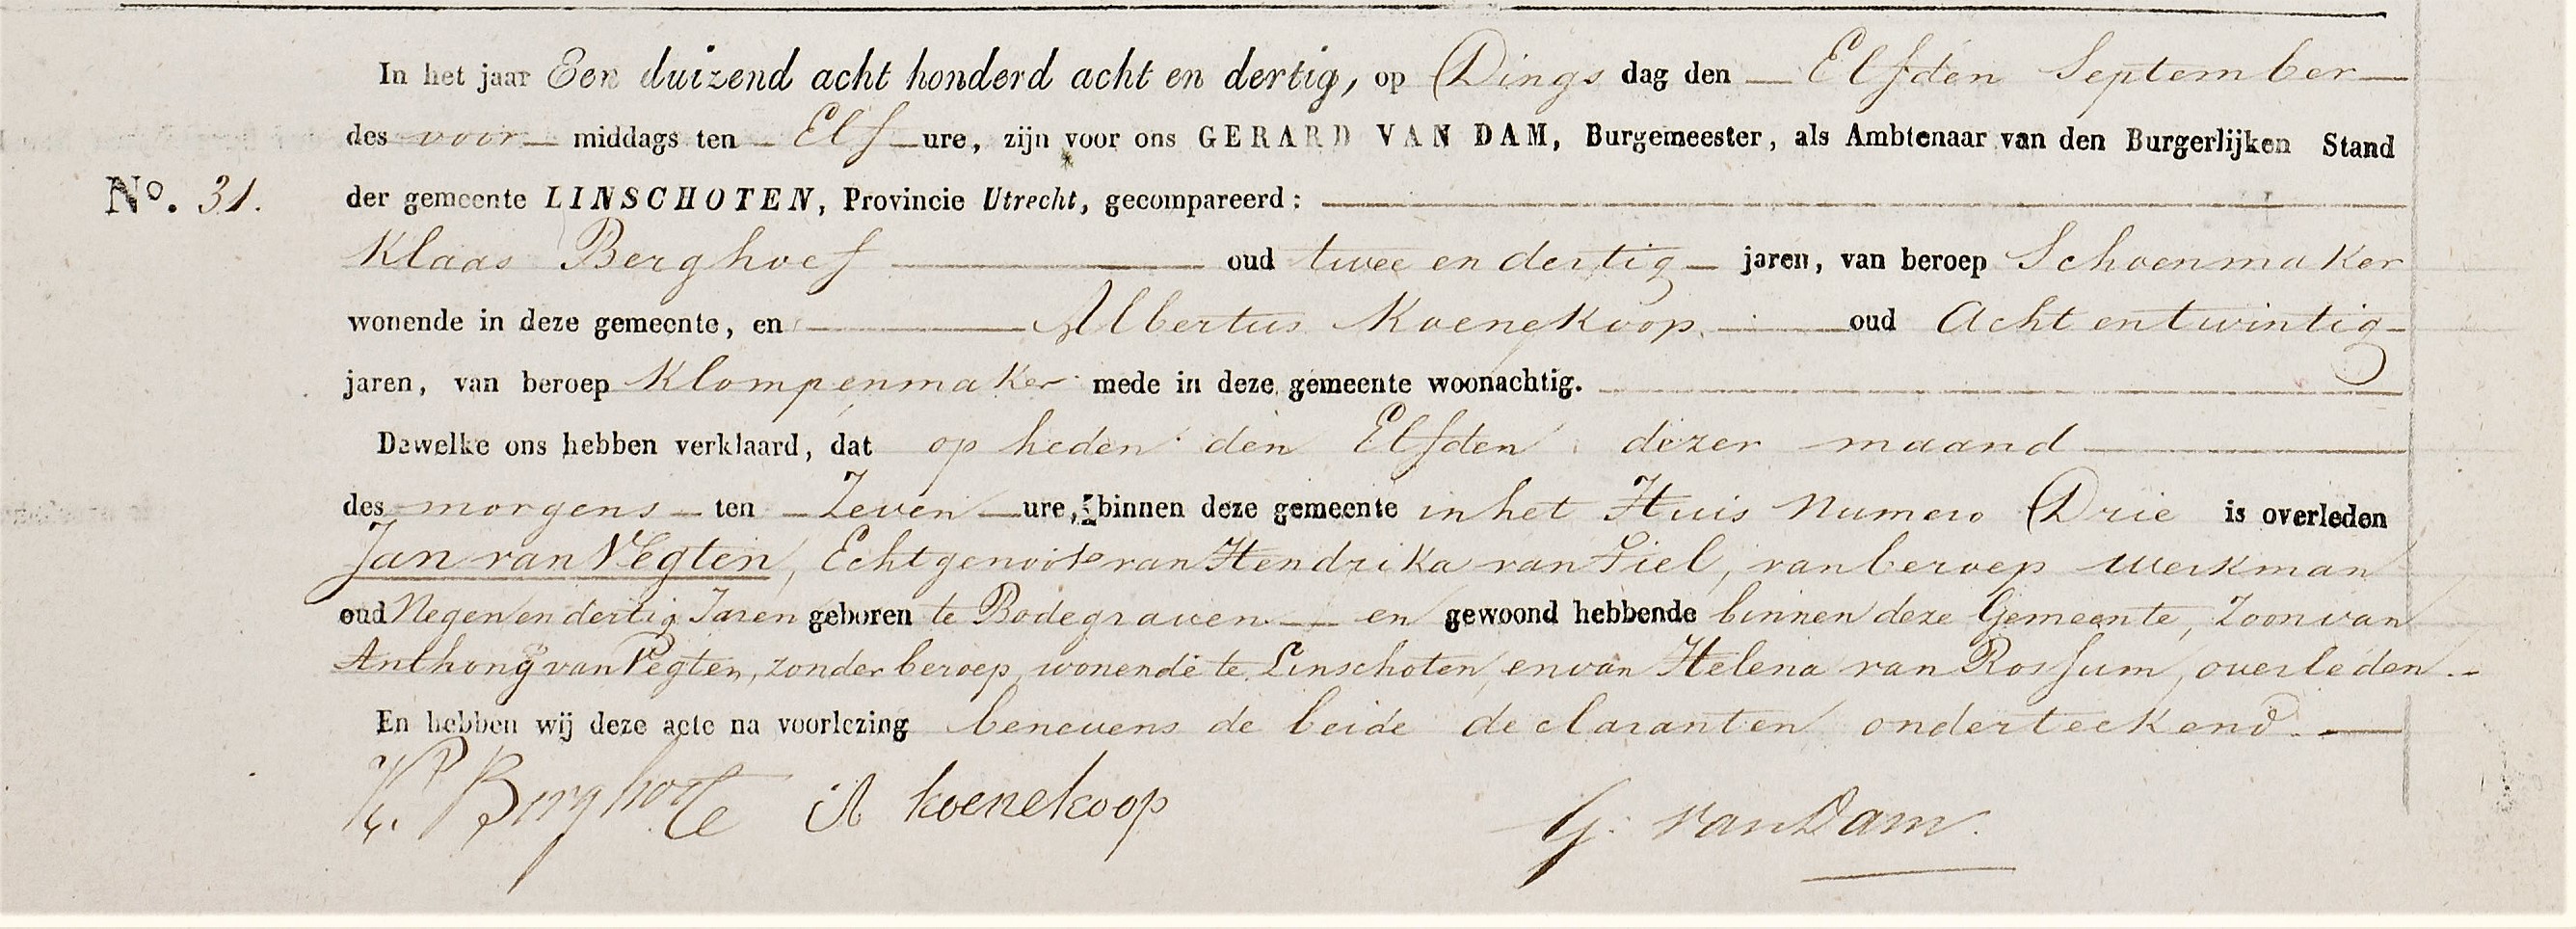 In het jaar Een duizend acht honderd acht en dertig, op Dings dag den Elfden September
des voor middags ten Elf ure, zijn voor ons GERARD VAN DAM, Burgemeester, als Ambtenaar van den Burgerlijken Stand
No. 31. der gemeente LINSCHOTEN, Provincie Utrecht, gecompareerd:
Klaas Berghoef oud twee en dertig jaren, van beroep Schoenmaker
wonende in deze gemeente, en Albertus Koenekoop. oud Acht en twintig
jaren, van beroep Klompenmaker mede in deze gemeente woonachtig.
Dewelke ons hebben verklaard, dat op heden den Elfden dezer maand
des morgens ten Zeven ure, binnen deze gemeente in het Huis Numero Drie is overleden
Jan van Vegten, Echtgenoot van Hendrika van Tiel, van beroep Werkman
oud Negen en dertig Jaren geboren te Bodegraven en gewoond hebbende binnen deze Gemeente, Zoon van
Anthony van Vegten, zonder beroep, wonende te Linschoten, en van Helena van Rossum, overleden.
En hebben wij deze acte na voorlezing benevens de beide declaranten onderteekend.
K. Berghoef A koenekoop G. van Dam.